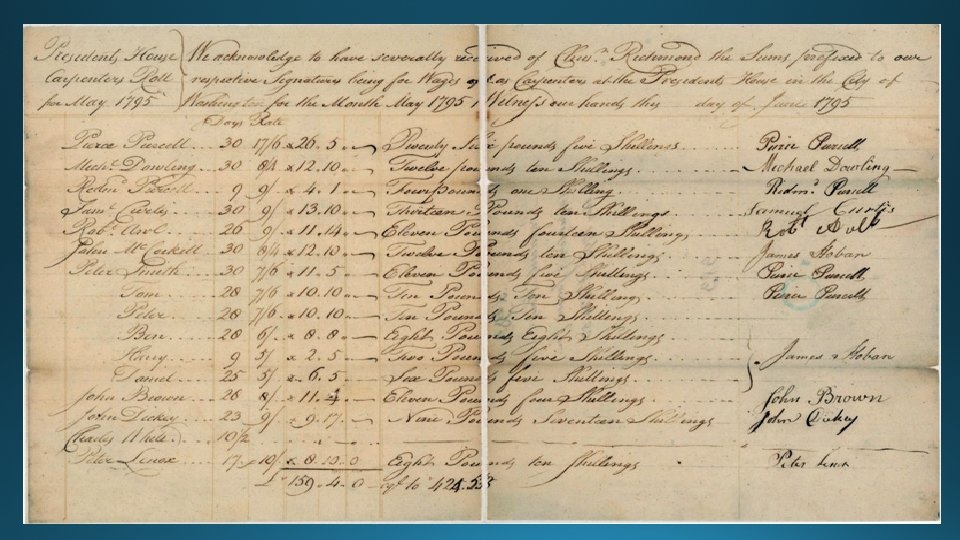 Presidents House Carpenters Roll for May 1795
We acknowledge to have severally received of Chrisr. Richmond the Sums prefixed to our
respective Signatures being for Wages as Carpenters at the Presidents House in the City of
Washington for the Month May 1795 Witness our hands this day of June 1795
Days Rate
Pierce Purcell 30 17/6 26.5 Twenty Six pounds five Shillings Pierce Purcell
Michl. Dowling 30 8/4 12.10 Twelve pounds ten Shillings Michael Dowling
Redmd. Purcell 9 9/ 4.1 Four pounds one Shilling Redmd. Purcell
Saml. Curtis 30 9/ 13.10 Thirteen Pounds ten Shillings Samuel Curtis
Robt. 26 9/ 11.14 Eleven Pounds fourteen Shillings Robt.
James McCorkill 30 8/4 12.10 Twelve Pounds ten Shillings James Hoban
Peter Smith 30 7/6 11.5 Eleven Pounds five Shillings Pierce Purcell
Tom 28 7/6 10.10 Ten Pounds Ten Shillings Pierce Purcell
Peter 28 7/6 10.10 Ten Pounds Ten Shillings
Ben 28 6/ 8.8 Eight Pounds Eight Shillings
Harry 9 5/ 2.5 Two Pounds five Shillings James Hoban
Daniel 25 5/ 6.5 Six Pounds five Shillings
John Brown 28 8/ 11.4 Eleven Pounds four Shillings John Brown
John Dickey 23 9/ 9.17 Nine Pounds Seventeen Shillings John Dickey
Charles 10/2
Peter Lenox 17 10/ 8.10.0 Eight Pounds ten Shillings Peter Lenox
£ 159.4.0 eql. to 424.53